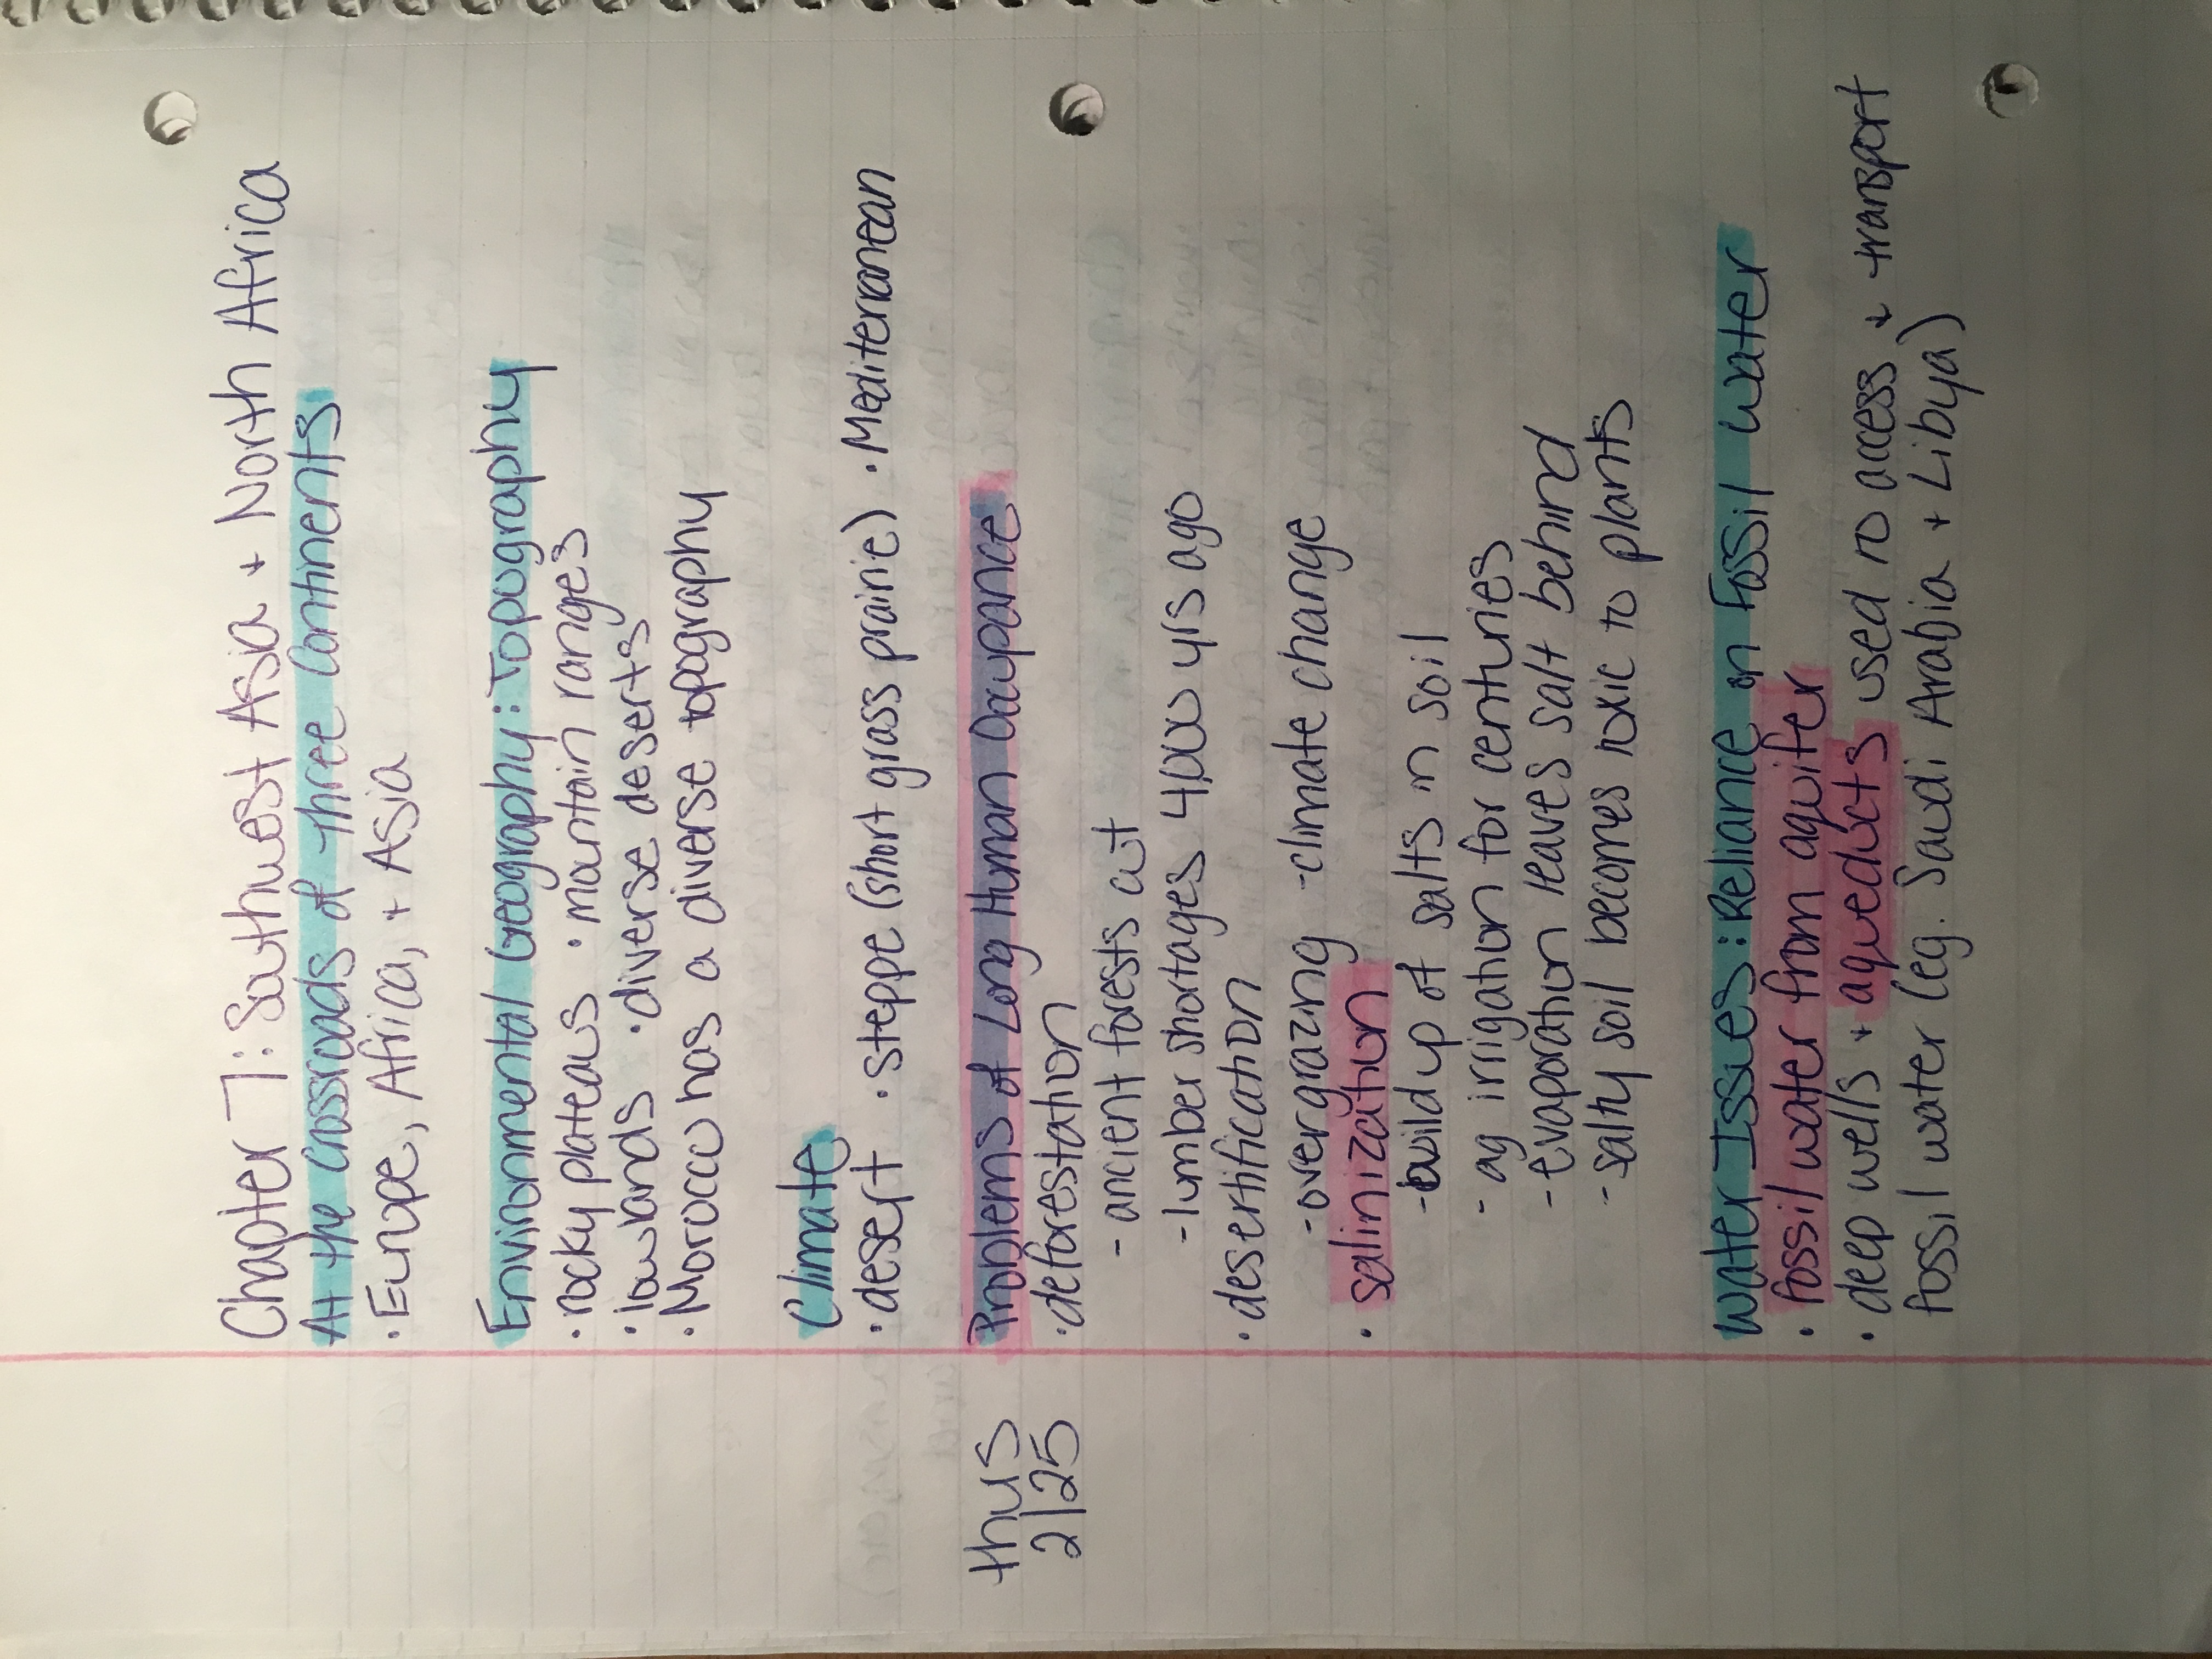 Chapter 7: Southwest Asia + North Africa
At the Crossroads of three Continents
• Europe, Africa, + Asia
Environmental Geography: Topography
• rocky plateaus • mountain ranges
• lowlands • diverse deserts
• Morocco has a diverse topography
Climate
• desert • steppe (short grass prairie) • Mediterranean
thus
2/25
Problems of Long Human Occupance
• deforestation
- ancient forests cut
- lumber shortages 4,000 yrs ago
• desertification
- overgrazing - climate change
• salinization
- buildup of salts in soil
- ag irrigation for centuries
- evaporation leaves salt behind
- salty soil becomes toxic to plants
Water Issues: Reliance on Fossil Water
• fossil water from aquifer
• deep wells + aqueducts used to access + transport
fossil water (eg. Saudi Arabia + Libya)